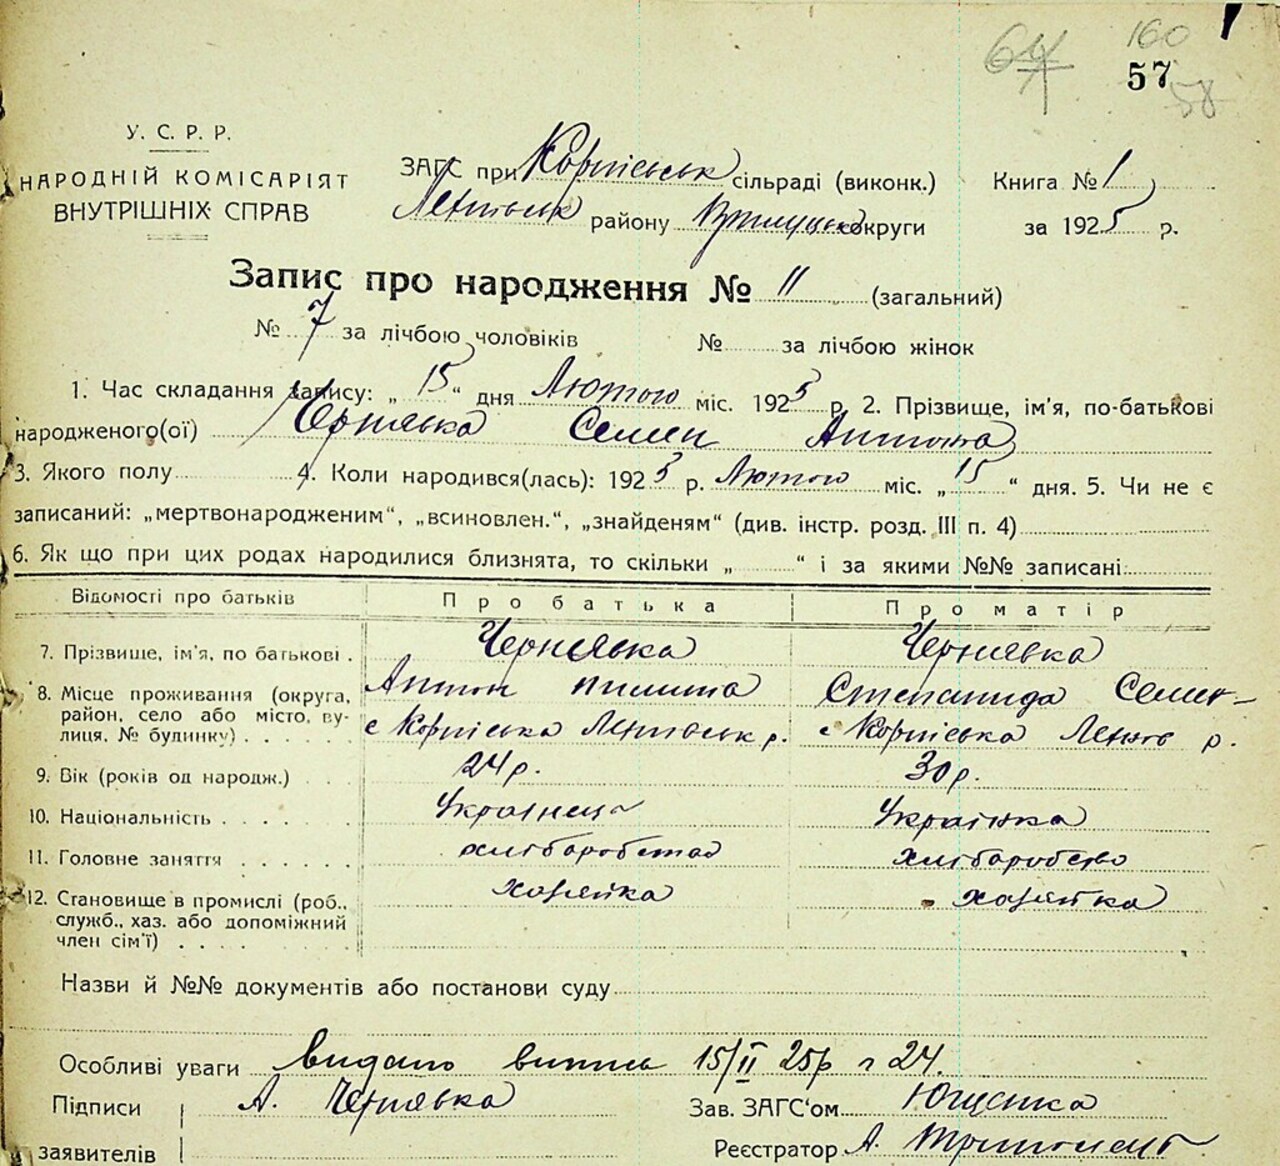 64 160
57 58
У. С. Р. Р.
НАРОДНІЙ КОМІСАРІЯТ
ВНУТРІШНІХ СПРАВ
ЗАГС при сільраді (виконк.)
району Прилуцьк округи
Книга № 1
за 1925 р.
Запис про народження № 11 (загальний)
№ 7 за лічбою чоловіків № за лічбою жінок
1. Час складання запису: „ 15 “ дня Лютого міс. 1925 р. 2. Прізвище, ім'я, по-батькові
народженого(ої) Чернявка Семен Антона
3. Якого полу 4. Коли народився(лась): 1925 р. Лютого міс. „ 15 “ дня. 5. Чи не є
записаний: „мертвонародженим“, „всиновлен.“, „знайденям“ (див. інстр. розд. III п. 4)
6. Як що при цих родах народилися близнята, то скільки „ “ і за якими №№ записані
Відомості про батьків Про батька Про матір
7. Прізвище, ім'я, по батькові . Чернявка Чернявка
8. Місце проживання (округа, Антон Степанида Семен-
район, село або місто, ву-
лиця, № будинку) р. р.
9. Вік (років од народж.) 24 р. 30 р.
10. Національність Українець Українка
11. Головне заняття хліборобство хліборобство
12. Становище в промислі (роб., хазяйка хазяйка
служб., хаз. або допоміжний
член сім'ї)
Назви й №№ документів або постанови суду
Особливі уваги видано випис 15/II 25р 24.
Підписи А. Чернявка Зав. ЗАГС'ом Ющенка
заявителів Реєстратор А.